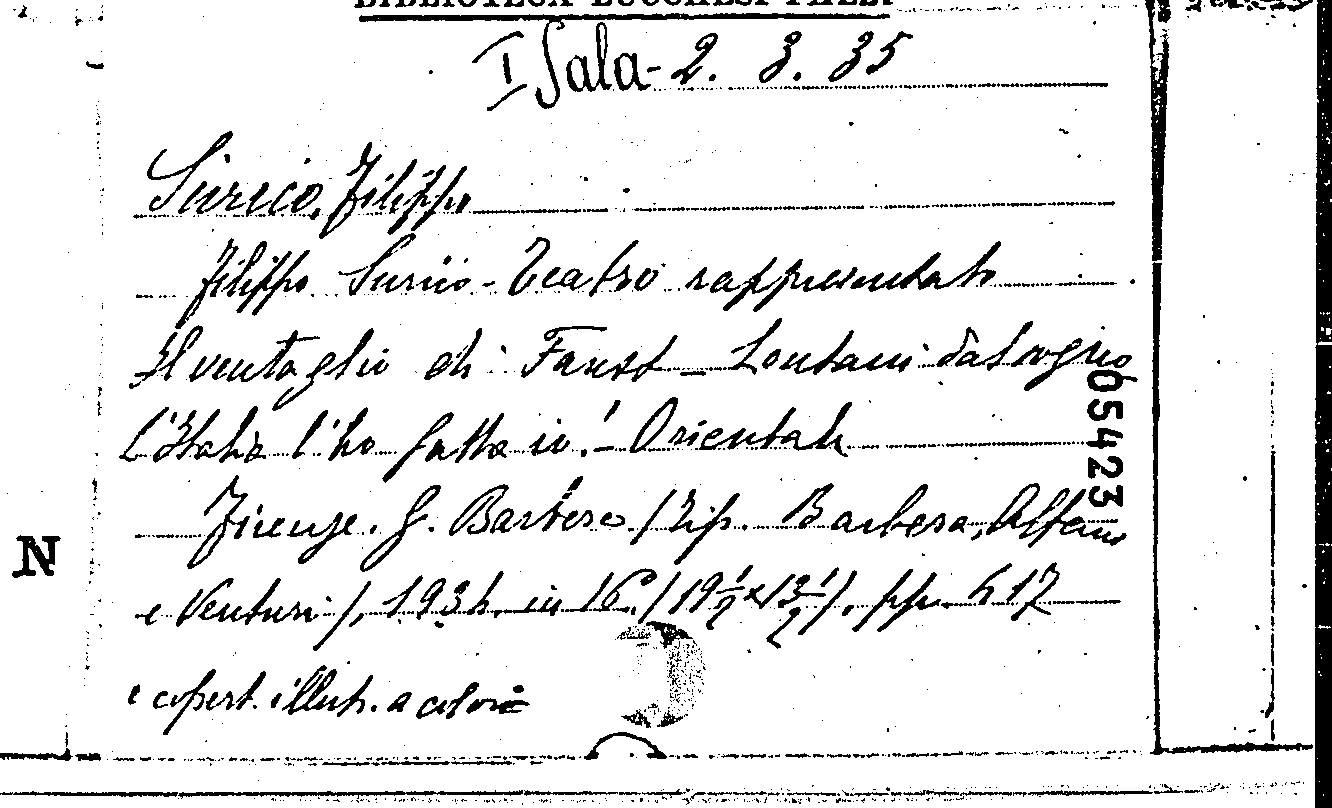 BIBLIOTECA LUCCHESI-PALLI
I Sala - 2. 3. 35
Surico, Filippo
Filippo Surico - Teatro rappresentato
Il ventaglio di Faust - Lontani dal sogno
L'Italia l'ho fatta io! - Orientale
05423
Firenze. G. Barbera (Tip. Barbera, Alfani
N
e Venturi), 1934. in 16º (19½ x 13½). pp. 417
e copert. illustr. a colori